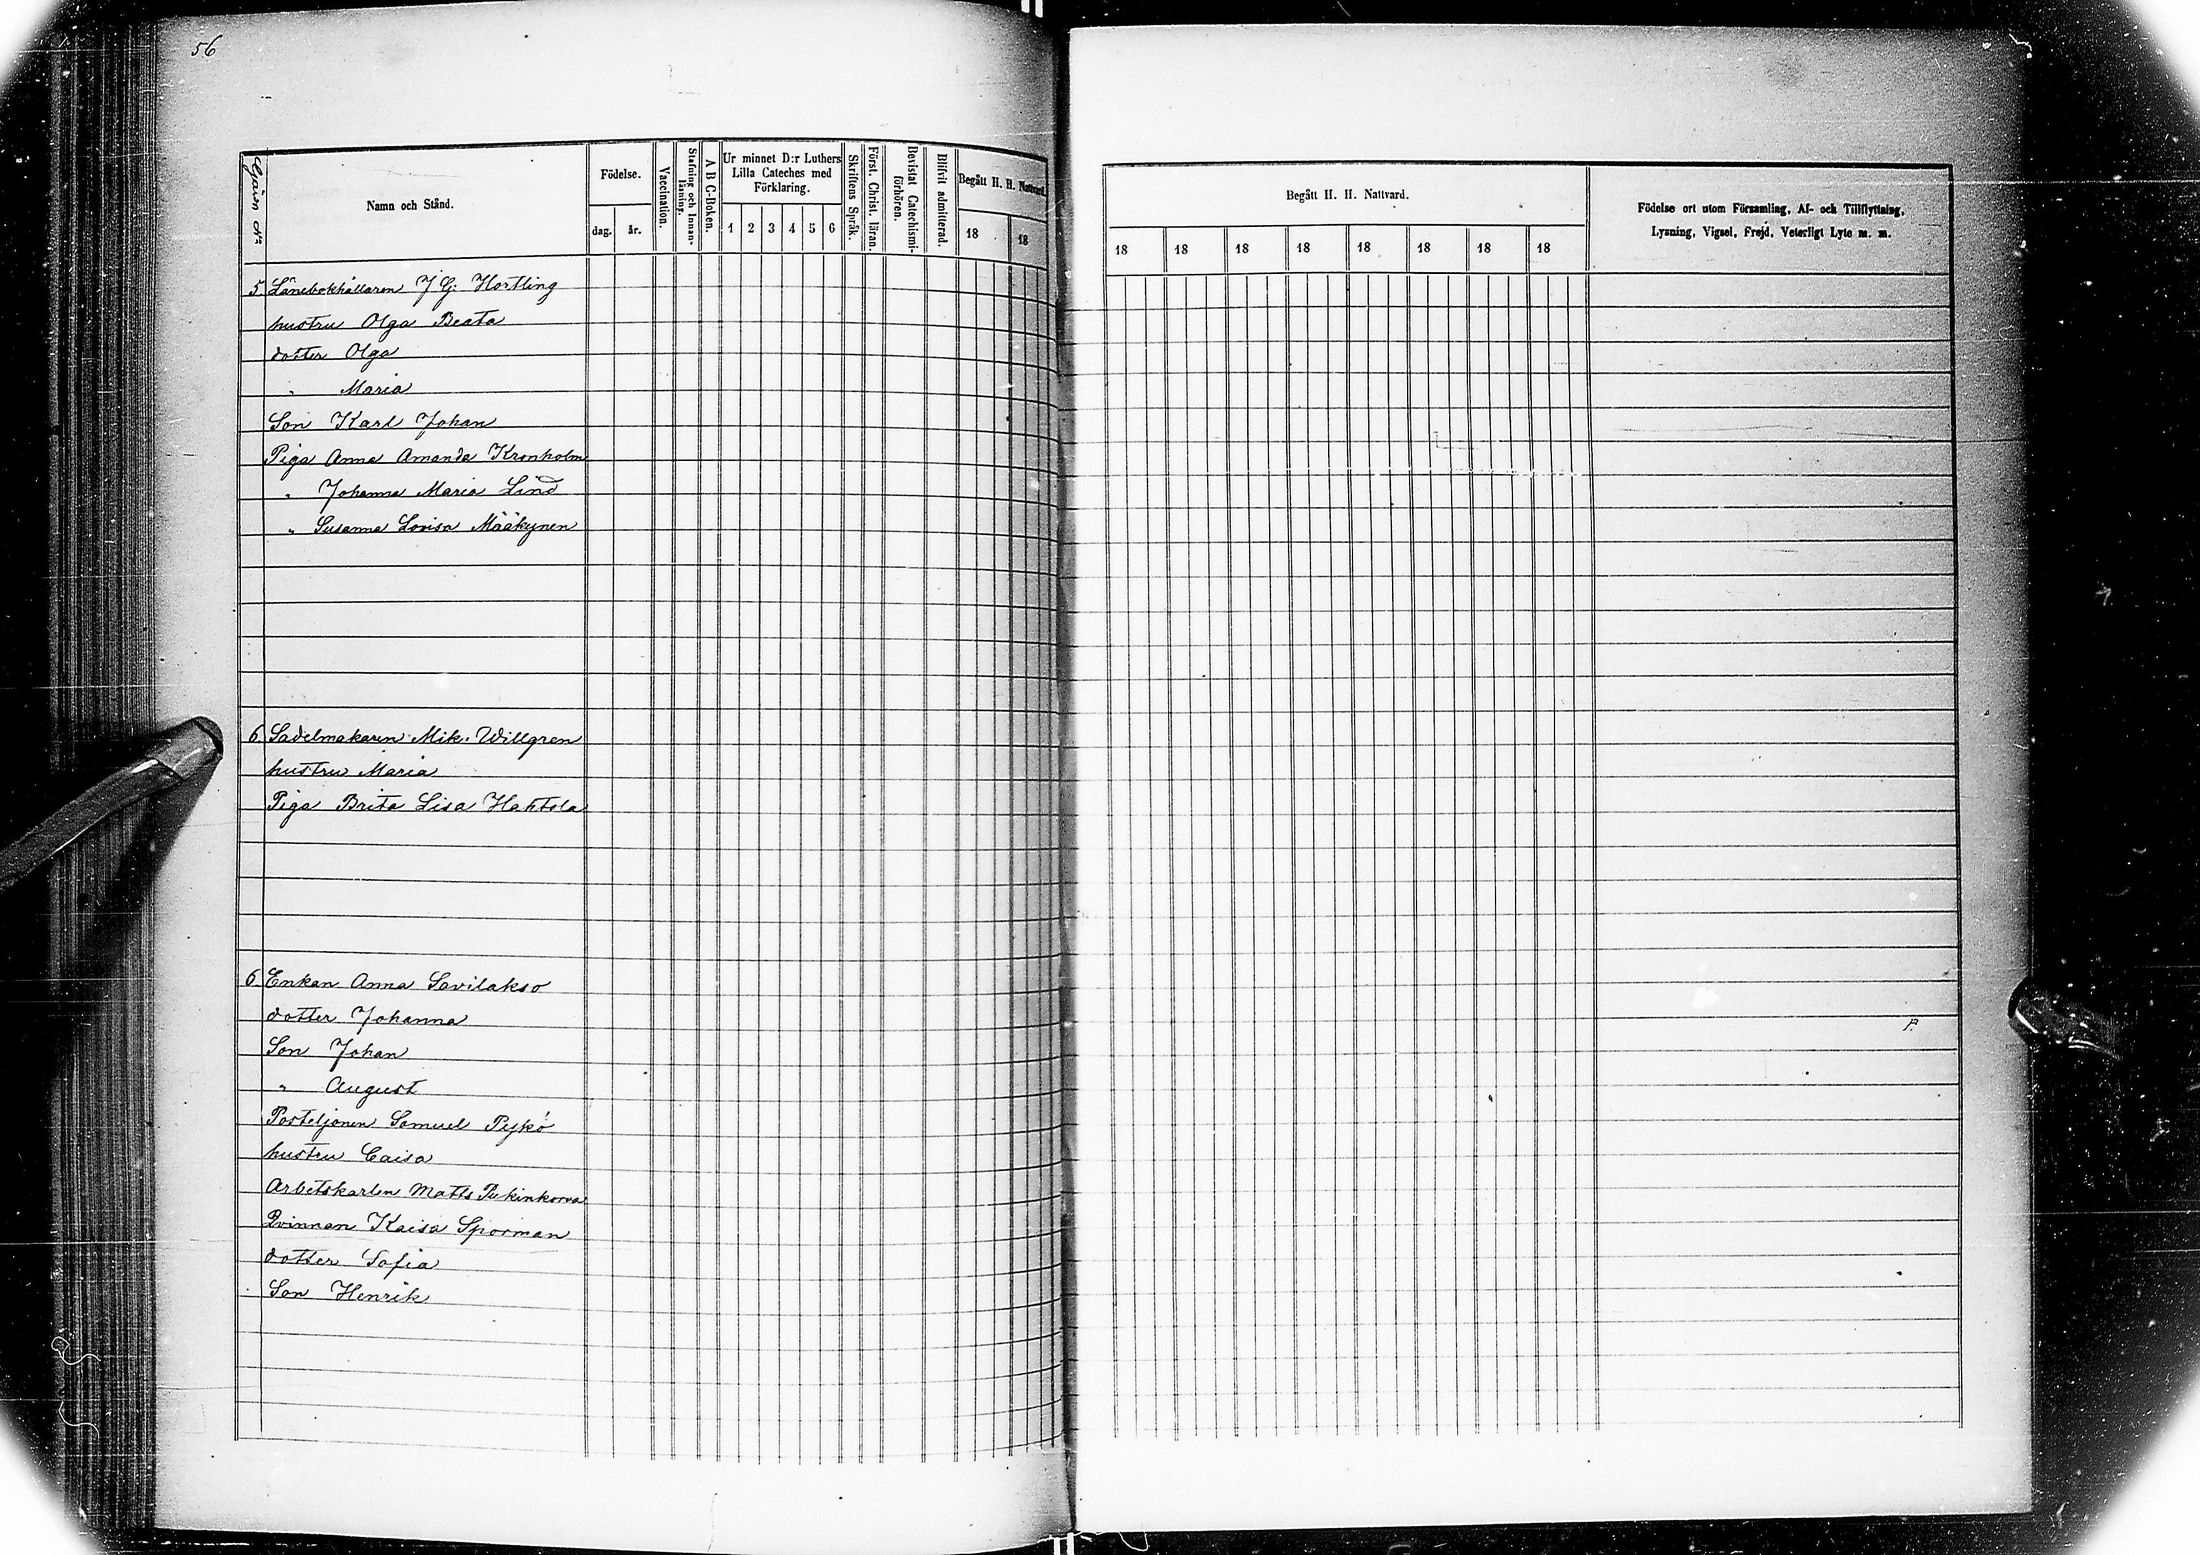 56
Gårds No
Namn och Stånd.
Födelse.
dag.
år.
Vaccination.
Stafning och Innan-
läsning.
A B C-Boken.
Ur minnet D:r Luthers
Lilla Cateches med
Förklaring.
1 2 3 4 5 6
Skriftens Språk.
Först. Christ. läran.
Bevistat Catechismi-
förhören.
Blifvit admitterad.
Begått H. H. Nattvard.
18 18
5. Länsbokhållaren J G: Hortling
hustru Olga Beata
dotter Olga
" Maria
Son Karl Johan
Piga Anna Amanda Kronholm
" Johanna Maria Lind
" Susanna Lovisa Määkynen
6 Sadelmakaren Mik. Willgren
hustru Maria
Piga Brita Lisa Hahtola
6 Enkan Anna Savilakso
dotter Johanna
Son Johan
" August
Posteljonen Samuel Pykö
hustru Caisa
Arbetskarlen Matts Pukinkorva
Qvinnan Kaisa Sporman
dotter Sofia
Son Henrik
Begått H. H. Nattvard.
18 18 18 18 18 18 18 18
Födelse ort utom Församling, Af- och Tillflyttning,
Lysning, Vigsel, Frejd, Veterligt Lyte m. m.